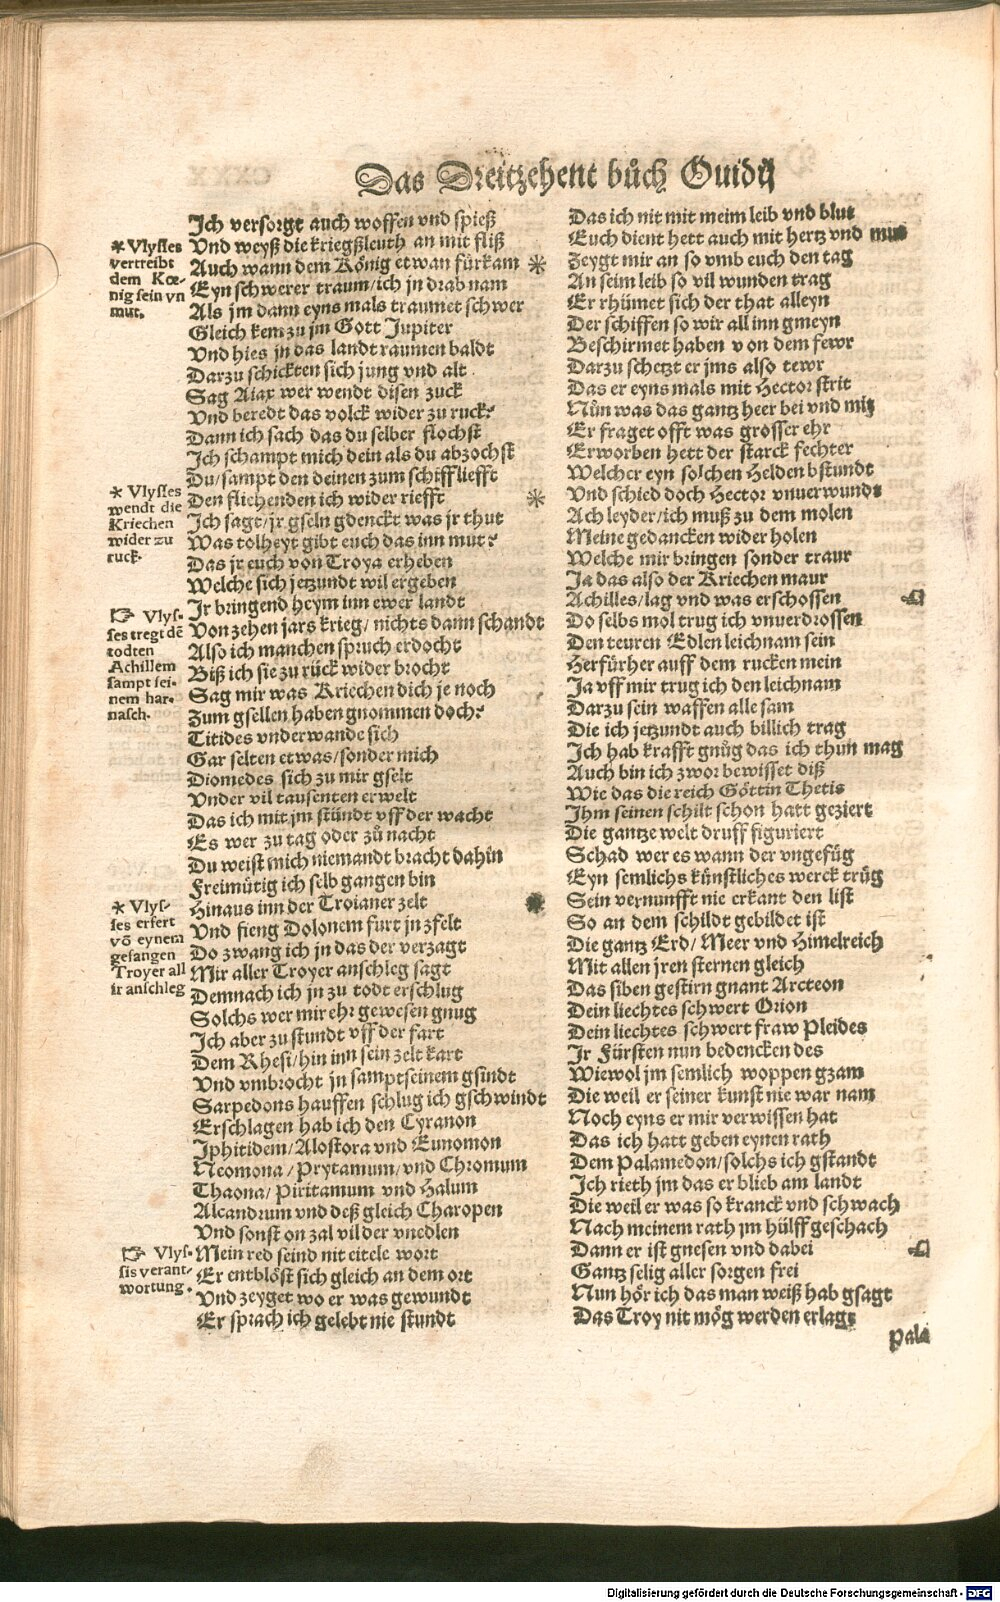 Das Dreitzehent bůch Ouidij
Ich versorgt auch woffen vnd spieß
Vnd weyß die kriegßleuth an mit fliß
Auch wann dem König etwan fürkam
Eyn schwerer traum/ich jn drab nam
Als jm dann eyns mals traumet schwer
Gleich kem zu jm Gott Jupiter
Vnd hies jn das landt raumen baldt
Darzu schickten sich jung vnd alt
Sag Aiax wer wendt disen zuck
Vnd beredt das volck wider zu ruck?
Dann ich sach das du selber flochst
Ich schampt mich dein als du abzochst
Du/sampt den deinen zum schiff lieff't
Den fliehenden ich wider riefft
Ich sagt/jr gseln gdenckt was jr thut
Was tolheyt gibt euch das inn mut?
Das jr euch von Troya erheben
Welche sich jetzundt wil ergeben
Jr bringend heym inn ewer landt
Von zehen jars krieg/nichts dann schandt
Also ich manchen spruch erdocht
Biß ich sie zu rück wider brocht
Sag mir was Kriechen dich je noch
Zum gsellen haben gnommen doch?
Titides vnderwande sich
Gar selten etwas/sonder mich
Diomedes sich zu mir gselt
Vnder vil tausenten erwelt
Das ich mit jm stündt vff der wacht
Es wer zu tag oder zů nacht
Du weist mich niemandt bracht dahin
Freimütig ich selb gangen bin
Hinaus inn der Troianer zelt
Vnd fieng Dolonem furt jn zfelt
Do zwang ich jn das der verzagt
Mir aller Troyer anschleg sagt
Demnach ich jn zu todt erschlug
Solchs wer mir ehr gewesen gnug
Ich aber zu stundt vff der fart
Dem Rhesi/hin inn sein zelt kart
Vnd vmbrocht jn sampt seinem gsindt
Sarpedons hauffen schlug ich gschwindt
Erschlagen hab ich den Cyranon
Iphitidem/Alostora vnd Eunomon
Neomona/Prytamum/vnd Chromum
Thaona/Piritamum vnd Halum
Alcandrum vnd deß gleich Charopen
Vnd sonst on zal vil der vnedlen
Mein red seind nit eitele wort
Er entblöst sich gleich an dem ort
Vnd zeyget wo er was gewundt
Er sprach ich gelebt nie stundt
* Vlysses
vertreibt
dem Kœ-
nig sein vn
mut.
* Vlysses
wendt die
Kriechen
wider zu
ruck.
☞ Vlys-
ses tregt dē
todten
Achillem
sampt sei-
nem har-
nasch.
* Vlys-
ses erfert
vō eynem
gefangen
Troyer all
ir anschleg
☞ Vlys-
sis verant-
wortung.
Das ich nit mit meim leib vnd blut
Euch dient hett auch mit hertz vnd mut
Zeygt mir an so vmb euch den tag
An seim leib so vil wunden trag
Er rhümet sich der that alleyn
Der schiffen so wir all inn gmeyn
Beschirmet haben von dem fewr
Darzu schetzt er jms also tewr
Das er eyns mals mit Hector strit
Nůn was das gantz heer bei vnd mit
Er fraget offt was grosser ehr
Erworben hett der starck fechter
Welcher eyn solchen Helden bstundt
Vnd schied doch Hector vnuerwundt
Ach leyder/ich muß zu dem molen
Meine gedancken wider holen
Welche mir bringen sonder traur
Ja das also der Kriechen maur
Achilles/lag vnd was erschossen
Do selbs mol trug ich vnuerdrossen
Den teuren Edlen leichnam sein
Herfürher auff dem rucken mein
Ja vff mir trug ich den leichnam
Darzu sein waffen alle sam
Die ich jetzundt auch billich trag
Ich hab krafft gnůg das ich thun mag
Auch bin ich zwor bewisset diß
Wie das die reich Göttin Thetis
Ihm seinen schilt schon hatt geziert
Die gantze welt druff figuriert
Schad wer es wann der vngefüg
Eyn semlichs künstliches werck trüg
Sein vernunfft nie erkant den list
So an dem schildt gebildet ist
Die gantz Erd/Meer vnd Himelreich
Mit allen jren sternen gleich
Das siben gestirn gnant Arcteon
Dein liechtes schwert Orion
Dein liechtes schwert fraw Pleides
Jr Fürsten nun bedencken des
Wiewol jm semlich woppen gzam
Die weil er seiner kunst nie war nam
Noch eyns er mir verwissen hat
Das ich hatt geben eynen rath
Dem Palamedon/solchs ich gstandt
Ich rieth jm das er blieb am landt
Die weil er was so kranck vnd schwach
Nach meinem rath jm hülff geschach
Dann er ist gnesen vnd dabei
Gantz selig aller sorgen frei
Nun hör ich das man weiß hab gsagt
Das Troy nit mög werden erlagt
Pala
Digitalisierung gefördert durch die Deutsche Forschungsgemeinschaft - DFG